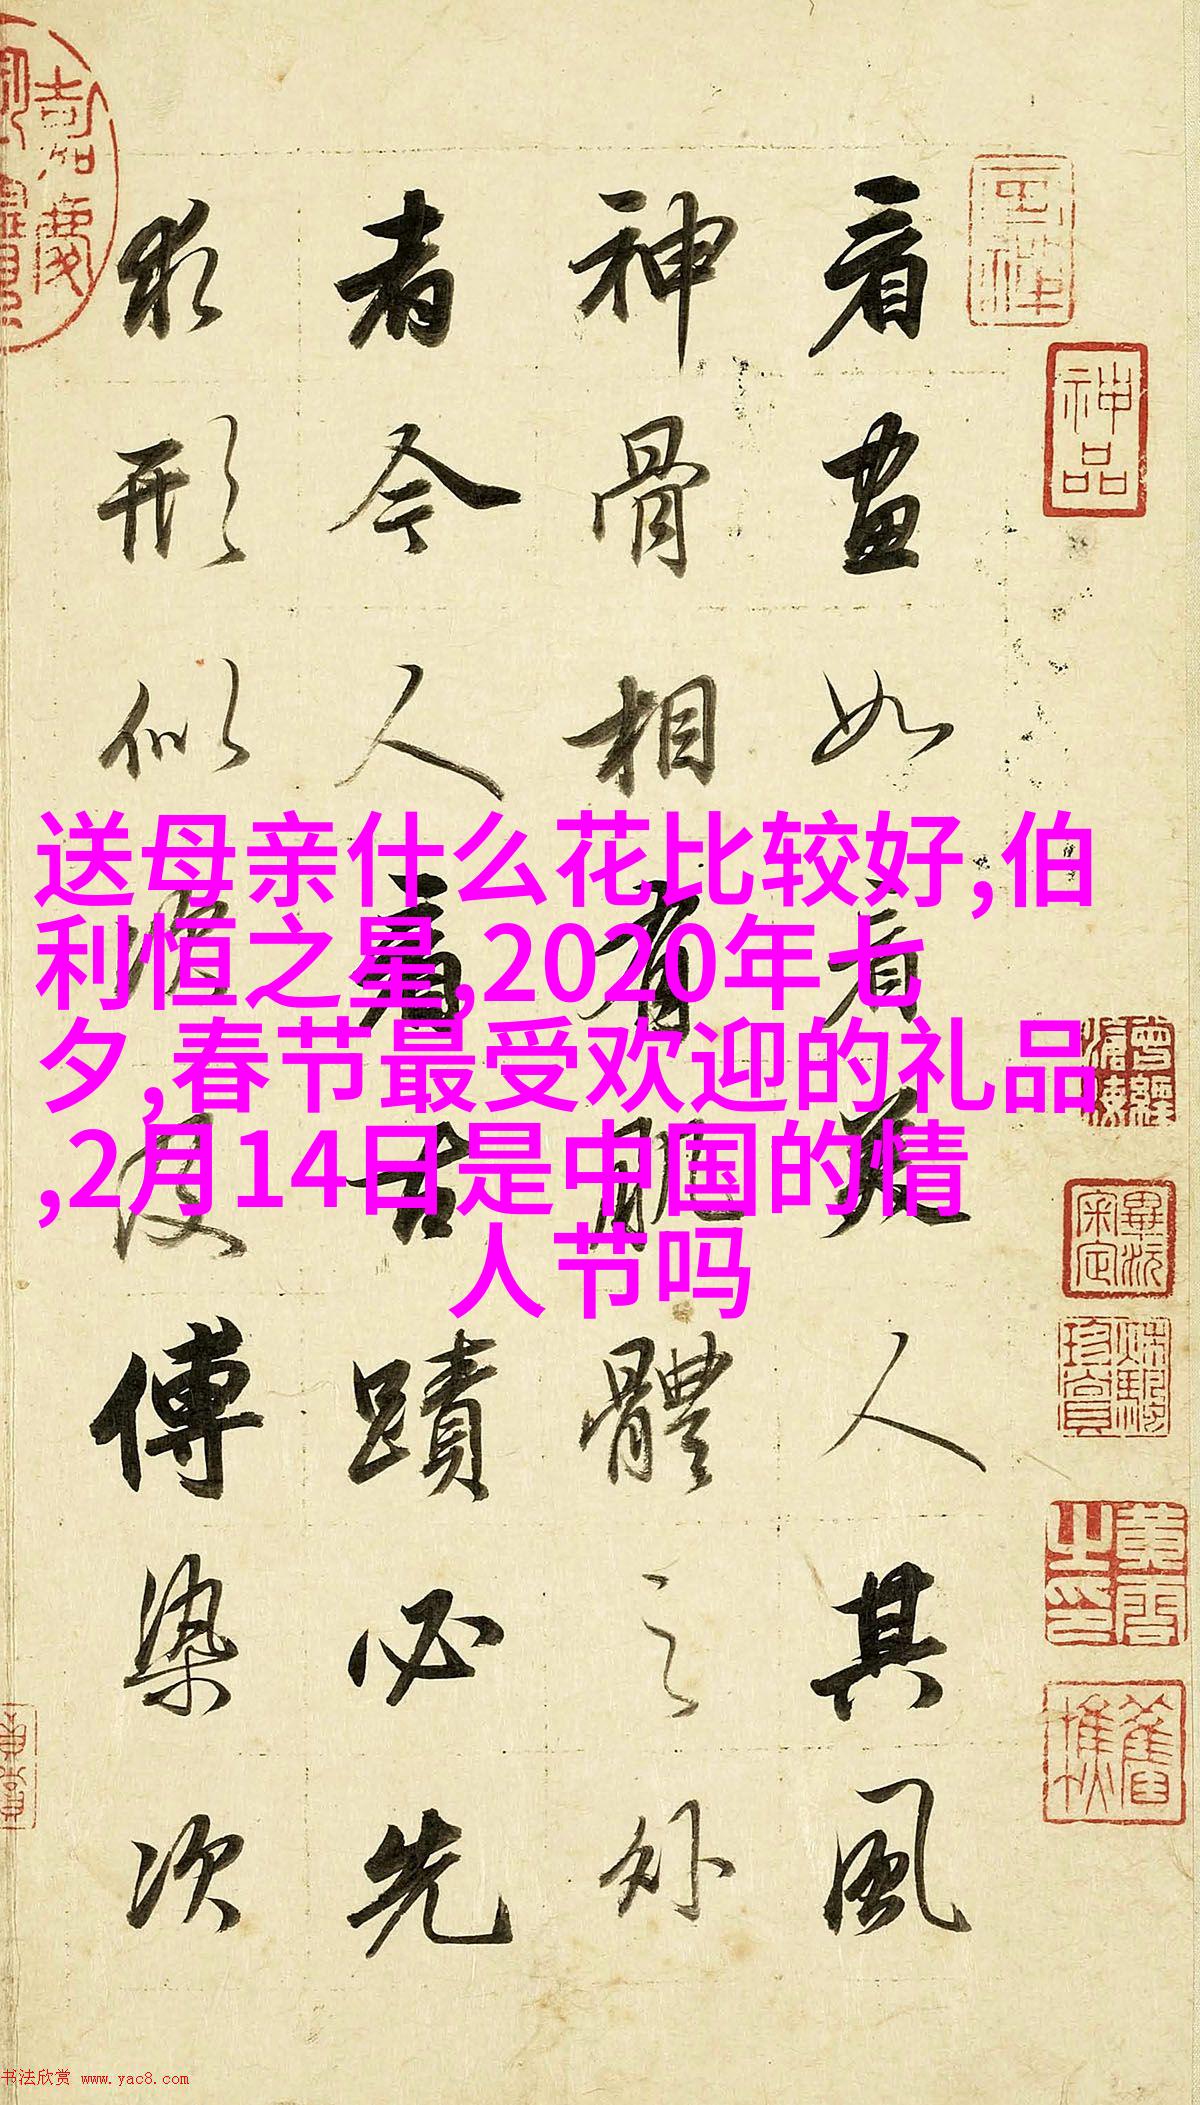 送母亲什么花比较好,伯
利恒之星,2020年七
夕,春节最受欢迎的礼品
,2月14日是中国的情
人节吗
看画如看美人其風
神骨相有肌體之外
者今人看古蹟必先
求形似次及傅染次
神品
嘉慶
书法欣赏 www.yac8.com